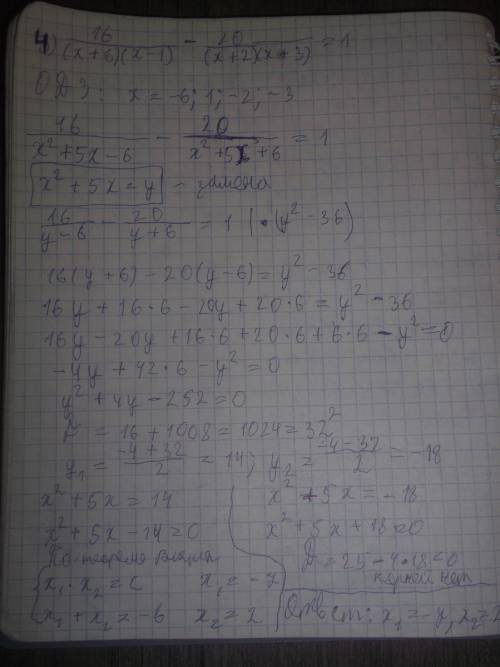 4) 16/((x+6)(x-1)) - 20/((x+2)(x+3)) = 1
ОДЗ: x = -6; 1; -2; -3
16/(x²+5x-6) - 20/(x²+5x+6) = 1
x²+5x=y - замена
16/(y-6) - 20/(y+6) = 1 | • (y²-36)
16(y+6) - 20(y-6) = y² - 36
16y + 16•6 - 20y + 20•6 = y² - 36
16y - 20y + 16•6 + 20•6 + 6•6 - y² = 0
-4y + 42•6 - y² = 0
y² + 4y - 252 = 0
D = 16 + 1008 = 1024 = 32²
y₁ = (-4+32)/2 = 14; y₂ = (-4-32)/2 = -18
x² + 5x = 14
x² + 5x - 14 = 0
По теореме Виета
x₁ • x₂ = c x₁ = -7
x₁ + x₂ = -b x₂ = 2
x² + 5x = -18
x² + 5x + 18 = 0
D = 25 - 4•18 = 0
корней нет
Ответ: x₁ = -7, x₂ = 2